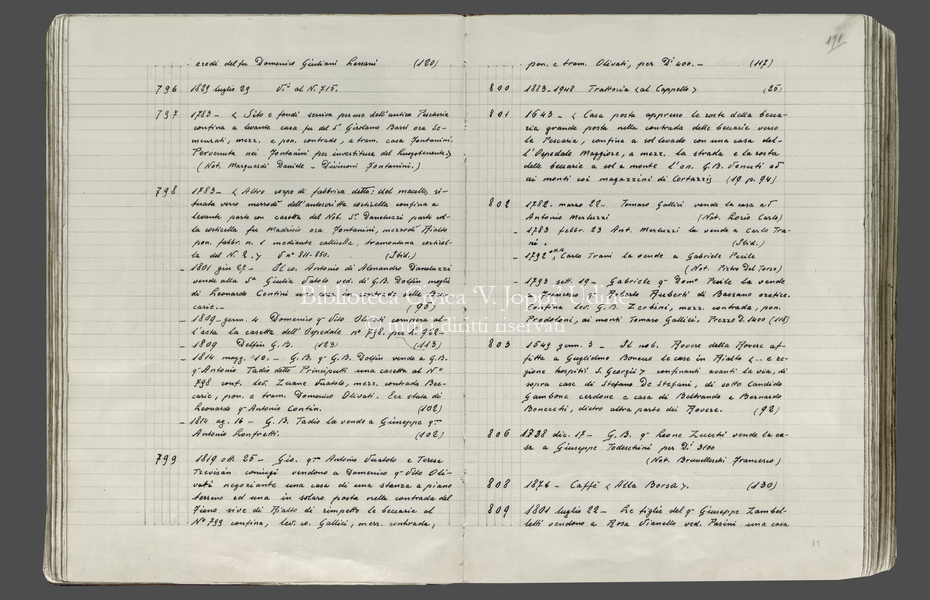 eredi del fu Domenico Giuliani Lessani (120)
796 1829 luglio 29 V.i al N. 715.
797 1783 - < Sito e fondi serviva per uso dell'antica Pescheria
confina a levante casa fu del S.r Girolamo Bassi ora So-
menzati, mezz. e pon. contrade, a tram. casa Fontanini.
Pervenuta nei Fontanini per investitura del Luogotenente.>
(Not. Marquardi Davide - Divisioni Fontanini.)
798 1783 - < Altro corpo di fabbrica detto: del macello, si-
tuata verso mezzodì dell'antescritta corticella confina a
levante parte con casetta del Nob. S.r Daneluzzi parte col-
la corticella fu Madrisio ora Fontanini, mezzodì Rialto
pon. fabbr. n. 1 mediante callisella, tramontana corticel-
la del N. 2. > V.i n° 811-850. (Ibid.)
- 1801 giu 27 - Il co. Antonio di Alessandro Daneluzzi
vende alla S.a Giulia Tatolo ved. di G.B. Dolfin, moglie
di Leonardo Contini
carie. - (95)
- 1809 genn. 4 Domenico q. Vito Olivati compera al-
l'asta la casetta dell'Ospedale n° 798. per L. 962 -
- 1809 Delfin G.B. (123) (113)
- 1814 magg. 10. - G.B. q. G.B. Dolfin vende a G.B.
q. Antonio Tadio detto Principutti una casetta al N°
798 conf. lev. Zuane Tuatolo, mezz. contrada Bec-
carie, pon. e tram. Domenico Olivati. Era stata di
Leonardo q. Antonio Contin. (102)
- 1814 ag. 16 - G.B. Tadio la vende a Giuseppe q.m
Antonio Lonfretti. (102)
799 1819 ott. 25 - Gio. q.m Antonio Tuatolo e Teresa
Trevisan coniugi vendono a Domenico q. Vito Oli-
vati negoziante una casa di una stanza a piano
terreno ed una in solaro posta nella contrada del
Fieno, sive di Rialto di rimpetto le beccarie al
N° 799 confina, lev. co. Gallici, mezz. contrada,
171
pon. e tram. Olivati, per D.i 400. - (117)
800 1883-1948 Trattoria < al Cappello > (25)
801 1643 - < Casa posta appresso le roste della becca-
ria grande posta nella contrada delle beccarie verso
la Pescaria, confina a sol levado con una casa del-
l'Ospedale Maggiore, a mezz. la strada e la rosta
delle beccarie a sol a monte l'on. G.B. Venuti et
ai monti coi magazzini di Cortazzis (19 p. 94)
802 1782. marzo 22 - Tomaso Gallici vende la casa ad
Antonio Merluzzi (Not. Lozio Carlo)
- 1783 febbr. 23 Ant. Merluzzi la vende a Carlo Tra-
ni. (Ibid.)
- 1792 Carlo Trani la vende a Gabriele Pecile
(Not. Pietro Del Torso)
- 1793 sett. 19 - Gabriele q. Dom.o Pecile la vende
a Francesco q. Ruberti di Bassano orefice.
Confina lev. G.B. Zerbini, mezz. contrada, pon.
Prodoloni, ai monti Tomaso Gallici. Prezzo D. 1400 (118)
803 1549 genn. 3 - Il nob. Rovere della Rovere af-
fitta a Guglielmo Boneus le case in Rialto < - e re-
gione hospitii S. Georgii > confinanti avanti la via, di
sopra case di Stefano De Stefani, di sotto Candido
Gambone cerdone e casa di Beltrando e Bernardo
Bonecosti, dietro altra parte dei Rovere. (92)
806 1738 dic. 17 - G.B. q. Leone Zucchi vende la ca-
sa a Giuseppe Todeschini per D.i 3100
(Not. Brunelleschi Francesco)
808 1876 - Caffè < Alla Borsa >. (130)
809 1801 luglio 22 - Le figlie del q. Giuseppe Zambel-
letti vendono a Rosa Vianello ved. Pasini una casa
Biblioteca Civica 'V. Joppi' Udine
© tutti i diritti riservati